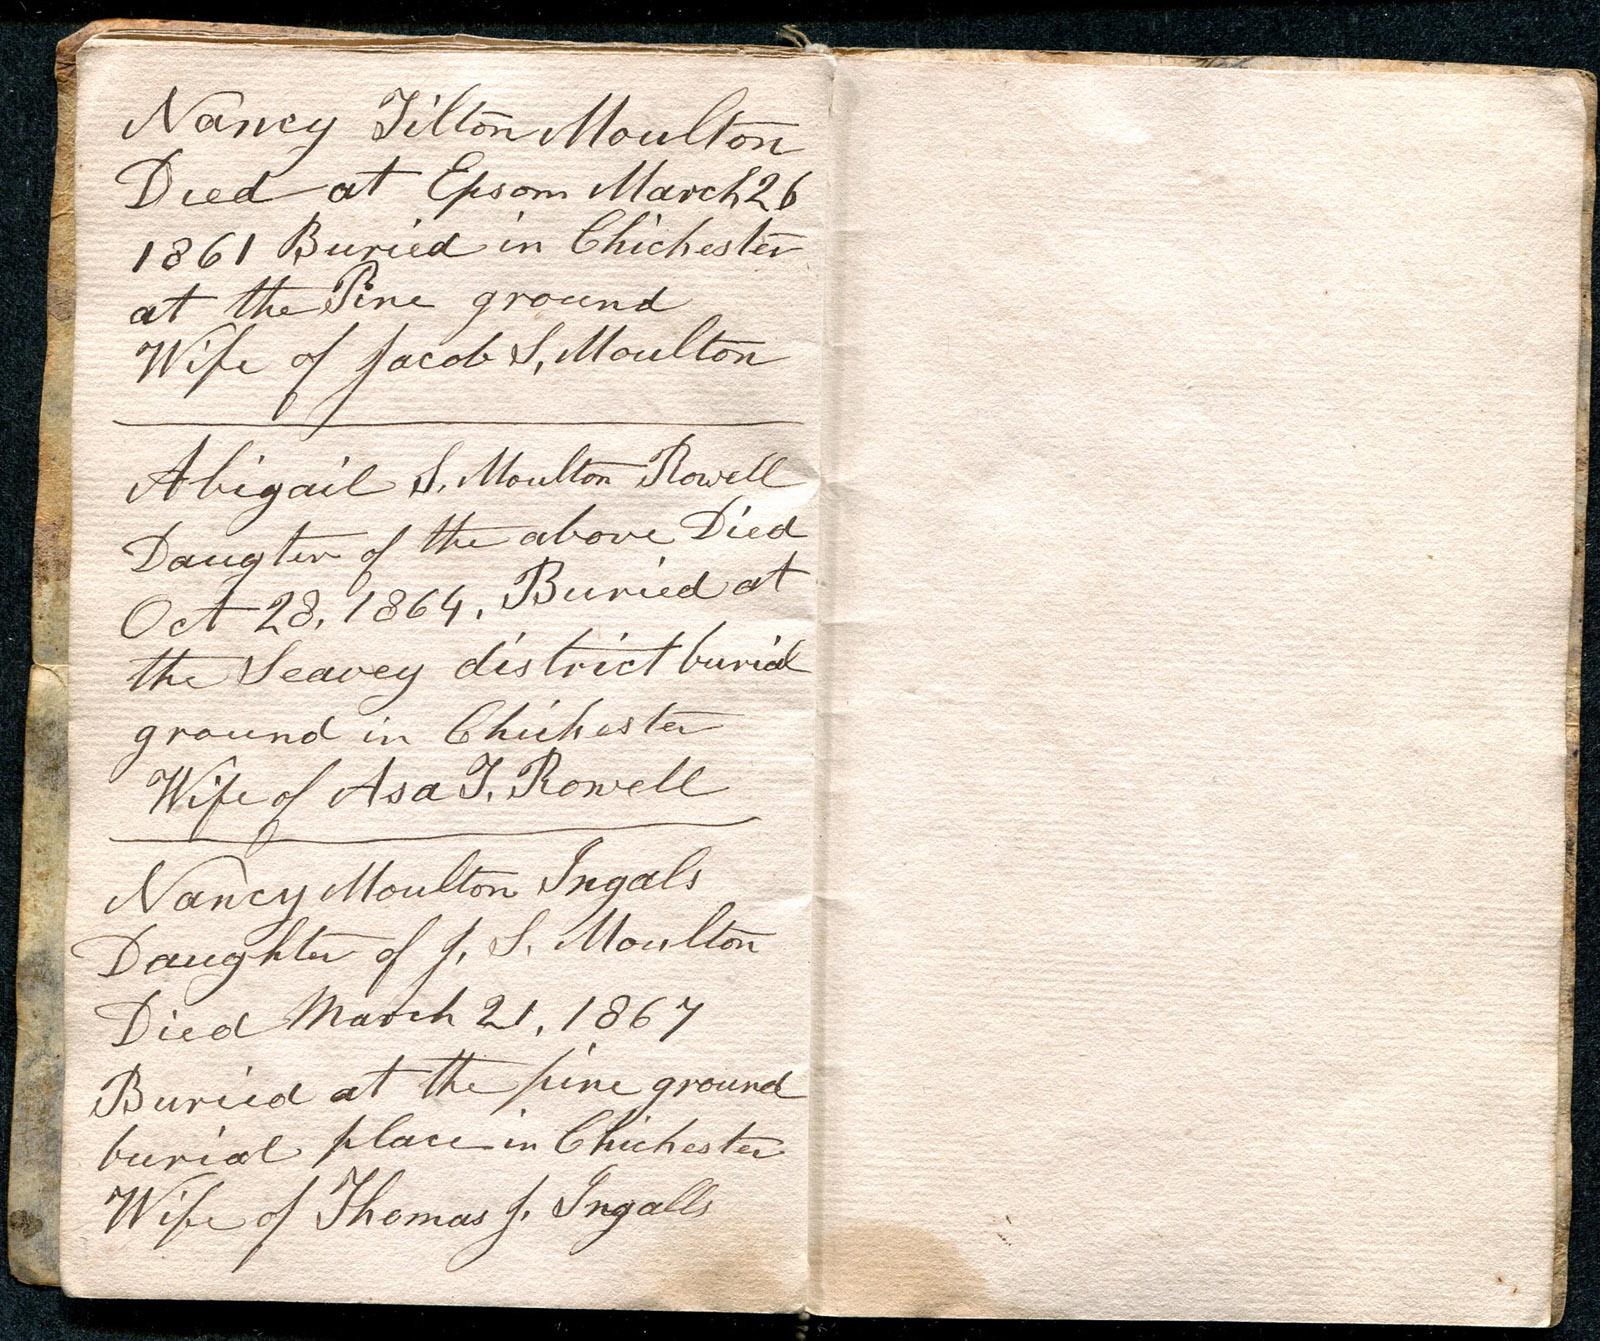 Nancy Tilton Moulton
Died at Epsom March 26
1861 Buried in Chichester
at the Pine ground
Wife of Jacob S. Moulton
Abigail S. Moulton Rowell
Daugter of the above Died
Oct 28, 1864. Buried at
the Seavey district burial
ground in Chichester
Wife of Asa T. Rowell
Nancy Moulton Ingals
Daughter of J. S. Moulton
Died March 21, 1867
Buried at the pine ground
burial place in Chichester
Wife of Thomas J. Ingalls